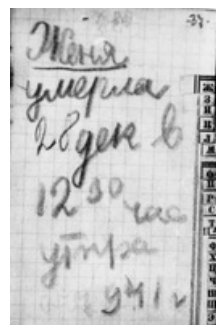 -37-
Женя
умерла
28 дек в
12 30 час
утра
1941 г
ж
з
и